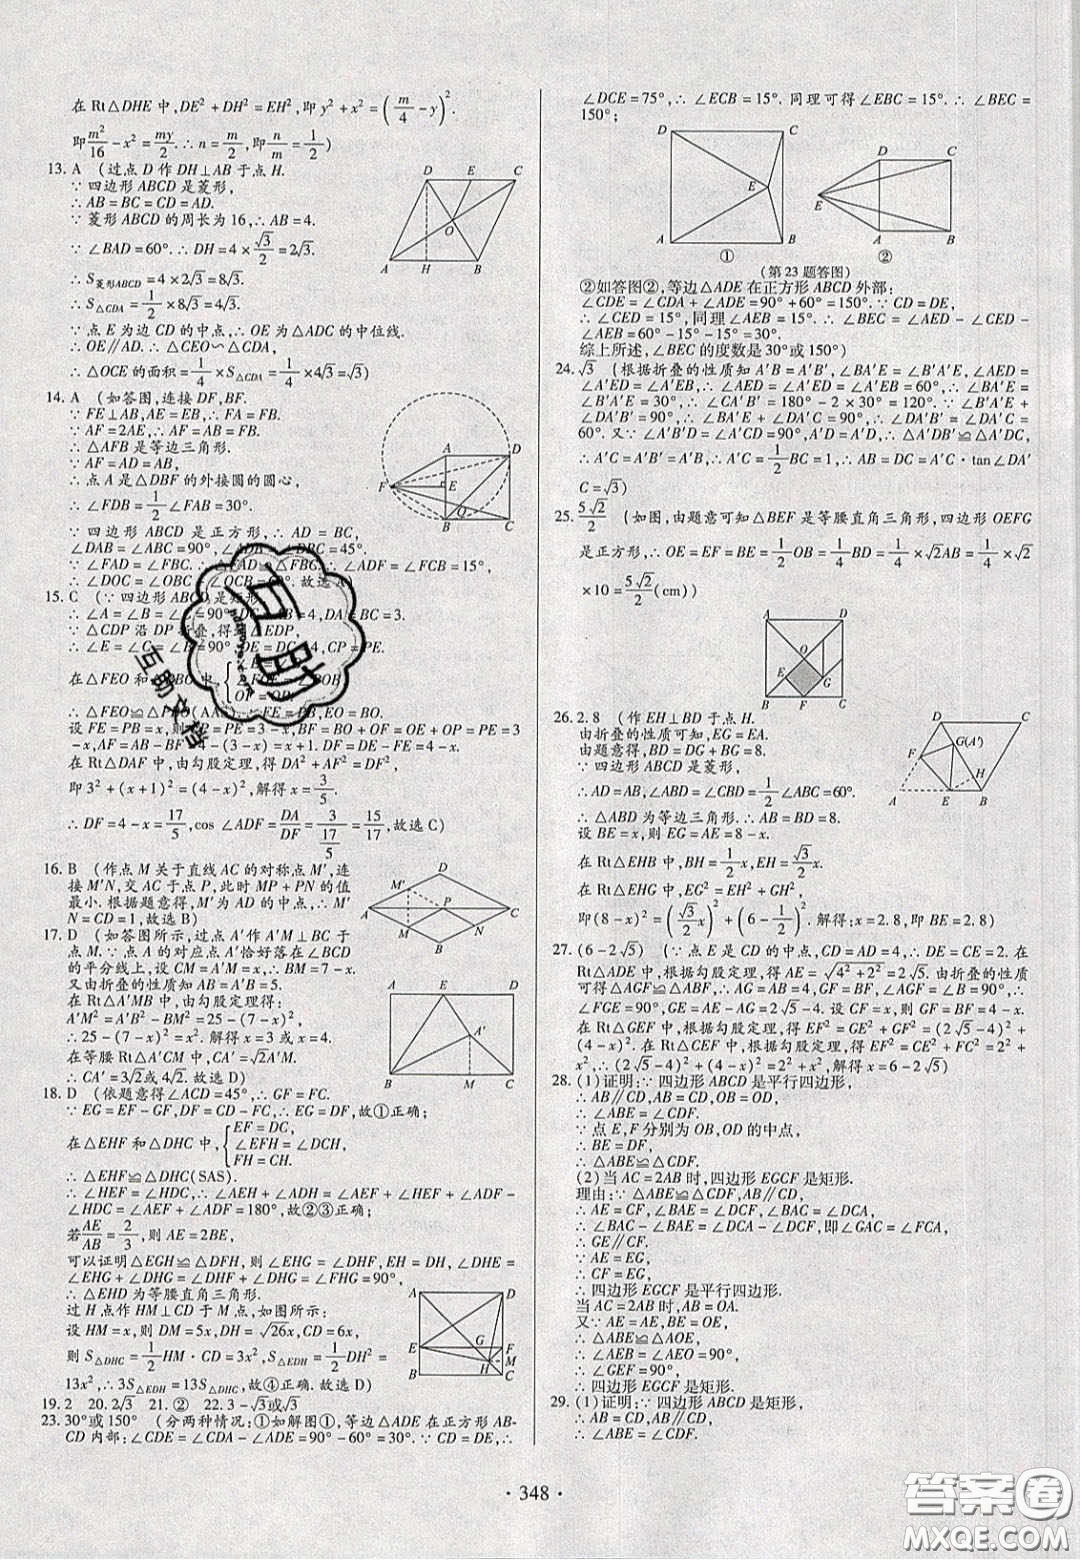 在 Rt△DHE 中,DE²+DH²=EH²,即 y²+x²=(m/4-y)².
即m²/16-x²=my/2.∴n=m/2,即n/m=1/2)
13. A (过点 D 作 DH⊥AB 于点 H.
∵四边形 ABCD 是菱形,
∴AB=BC=CD=AD.
∵菱形 ABCD 的周长为 16,∴AB=4.
∵∠BAD=60°.∴DH=4×√3/2=2√3.
∴S菱形ABCD=4×2√3=8√3.
∴S△CDA=1/2×8√3=4√3.
∵点 E 为边 CD 的中点,∴OE 为△ADC 的中位线.
∴OE∥AD.∴△CEO∽△CDA,
∴△OCE 的面积=1/4×S△CDA=1/4×4√3=√3)
14. A (如答图,连接 DF,BF.
∵FE⊥AB,AE=EB,∴FA=FB.
∵AF=2AE,∴AF=AB=FB.
∴△AFB 是等边三角形.
∵AF=AD=AB,
∴点 A 是△DBF 的外接圆的圆心,
∴∠FDB=1/2∠FAB=30°.
∵四边形 ABCD 是正方形,∴AD=BC,
∠DAB=∠ABC=90°,∠DBC=45°.
∴∠FAD=∠FBC.∴△FAD≌△FBC.∴∠ADF=∠FCB=15°,
∴∠DOC=∠OBC+∠OCB=60°.故选 A)
15. C (∵四边形 ABCD 是矩形,
∴∠A=∠B=∠C=90°,DC=AB=4,DA=BC=3.
∵△CDP 沿 DP 折叠,得到△EDP,
∴∠E=∠C=90°,DE=DC=4,CP=PE.
在△FEO 和△PBO 中,
OF=OP.
∴△FEO≌△PBO(AAS).∴FE=PB,EO=BO.
设 FE=PB=x,则CP=PE=3-x,BF=BO+OF=OE+OP=PE=3
-x,AF=AB-BF=4-(3-x)=x+1.DF=DE-FE=4-x.
在 Rt△DAF 中,由勾股定理,得 DA²+AF²=DF²,
即 3²+(x+1)²=(4-x)²,解得 x=3/5.
∴DF=4-x=17/5,cos∠ADF=DA/DF=3/(17/5)=15/17,故选 C)
16. B (作点 M 关于直线 AC 的对称点 M′,连
接 M′N,交 AC 于点 P,此时 MP+PN 的值
最小.根据题意得,M′为 AD 的中点,∴M′
N=CD=1,故选 B)
17. D (如答图所示,过点 A′作 A′M⊥BC 于
点 M.∵点 A 的对应点 A′恰好落在∠BCD
的平分线上,∴设 CM=A′M=x,∴BM=7-x.
又由折叠的性质知 AB=A′B=5.
在 Rt△A′MB 中,由勾股定理得:
A′M²=A′B²-BM²=25-(7-x)²,
∴25-(7-x)²=x².解得 x=3 或 x=4.
在等腰 Rt△A′CM 中,CA′=√2A′M.
∴CA′=3√2或 4√2.故选 D)
18. D (依题意得∠ACD=45°,∴GF=FC.
∵EG=EF-GF,DF=CD-FC,∴EG=DF,故①正确;
在△EHF 和△DHC 中,{EF=DC,
∠EFH=∠DCH,
FH=CH.
∴△EHF≌△DHC(SAS).
∴∠HEF=∠HDC,∴∠AEH+∠ADH=∠AEF+∠HEF+∠ADF-
∠HDC=∠AEF+∠ADF=180°,故②③正确;
若AE/AB=2/3,则 AE=2BE,
可以证明△EGH≌△DFH,则∠EHG=∠DHF,EH=DH,∠DHE
=∠EHG+∠DHG=∠DHF+∠DHG=∠FHG=90°,
∴△EHD 为等腰直角三角形.
过 H 点作 HM⊥CD 于 M 点,如图所示:
设 HM=x,则 DM=5x,DH=√26x,CD=6x,
则 S△DHC=1/2HM·CD=3x²,S△EDH=1/2DH²=
13x²,∴3S△EDH=13S△DHC,故④正确.故选 D)
19. 2 20. 2√3 21. ② 22. 3-√3或√3
23. 30°或 150° (分两种情况:①如解图①,等边△ADE 在正方形 AB-
CD 内部:∠CDE=∠CDA-∠ADE=90°-60°=30°.∵CD=DE,∴
∠DCE=75°,∴∠ECB=15°.同理可得∠EBC=15°.∴∠BEC=
150°;
(第 23 题答图)
②如答图②,等边△ADE 在正方形 ABCD 外部:
∠CDE=∠CDA+∠ADE=90°+60°=150°.∵CD=DE,
∴∠CED=15°,同理∠AEB=15°.∴∠BEC=∠AED-∠CED-
∠AEB=60°-15°-15°=30°.
综上所述,∠BEC 的度数是 30°或 150°)
24. √3 (根据折叠的性质知 A′B=A′B′,∠BA′E=∠B′A′E,∠AED=
∠A′ED=∠A′EB,∴∠AED=∠A′ED=∠A′EB=60°,∴∠BA′E=
∠B′A′E=30°,∴∠BA′C=180°-2×30°=120°.∵∠B′A′E+
∠DA′B′=90°,∴∠BA′E+∠DA′C=90°,∴∠DA′B′=∠DA′C=
60°.又∵∠A′B′D=∠C=90°,A′D=A′D,∴△A′DB′≌△A′DC,
∴A′C=A′B′=A′B,∴A′C=1/2BC=1,∴AB=DC=A′C·tan∠DA′
C=√3)
25. 5√2/2 (如图,由题意可知△BEF 是等腰直角三角形,四边形 OEFG
是正方形,∴OE=EF=BE=1/2OB=1/4BD=1/4×√2AB=1/4×√2
×10=5√2/2(cm))
26. 2.8 (作 EH⊥BD 于点 H.
由折叠的性质可知,EG=EA.
由题意得,BD=DG+BG=8.
∵四边形 ABCD 是菱形,
∴AD=AB,∠ABD=∠CBD=1/2∠ABC=60°.
∴△ABD 为等边三角形.∴AB=BD=8.
设 BE=x,则 EG=AE=8-x.
在 Rt△EHB 中,BH=1/2x,EH=√3/2x.
在 Rt△EHG 中,EG²=EH²+GH²,
即(8-x)²=(√3/2x)²+(6-1/2x)².解得:x=2.8,即 BE=2.8)
27. (6-2√5) (∵点 E 是 CD 的中点,CD=AD=4,∴DE=CE=2.在
Rt△ADE 中,根据勾股定理,得 AE=√4²+2²=2√5.由折叠的性质
可得△AGF≌△ABF,∴AG=AB=4,GF=BF,∠AGF=∠B=90°,∴
∠FGE=90°,GE=AE-AG=2√5-4.设 CF=x,则 GF=BF=4-x.
在 Rt△GEF 中,根据勾股定理,得 EF²=GE²+GF²=(2√5-4)²+
(4-x)².在 Rt△CEF 中,根据勾股定理,得 EF²=CE²+FC²=2²+
x².∴(2√5-4)²+(4-x)²=2²+x²,解得 x=6-2√5)
28. (1)证明:∵四边形 ABCD 是平行四边形,
∴AB∥CD,AB=CD,OB=OD.
∴∠ABE=∠CDF.
∵点 E,F 分别为 OB,OD 的中点,
∴BE=DF,
∴△ABE≌△CDF.
(2)当 AC=2AB 时,四边形 EGCF 是矩形.
理由:∵△ABE≌△CDF,AB∥CD,
∴AE=CF,∠BAE=∠DCF,∠BAC=∠DCA,
∴∠BAC-∠BAE=∠DCA-∠DCF,即∠GAC=∠FCA,
∴GE∥CF.
∵AE=EG,
∴CF=EG,
∴四边形 EGCF 是平行四边形.
当 AC=2AB 时,AB=OA.
又∵AE=AE,BE=OE,
∴△ABE≌△AOE,
∴∠AEB=∠AEO=90°,
∴∠GEF=90°,
∴四边形 EGCF 是矩形.
29. (1)证明:∵四边形 ABCD 是矩形,
∴AB=CD,AB∥CD,
∴∠ABE=∠CDF.
· 348 ·
互助
互助文档
答案圈
MXQE.COM